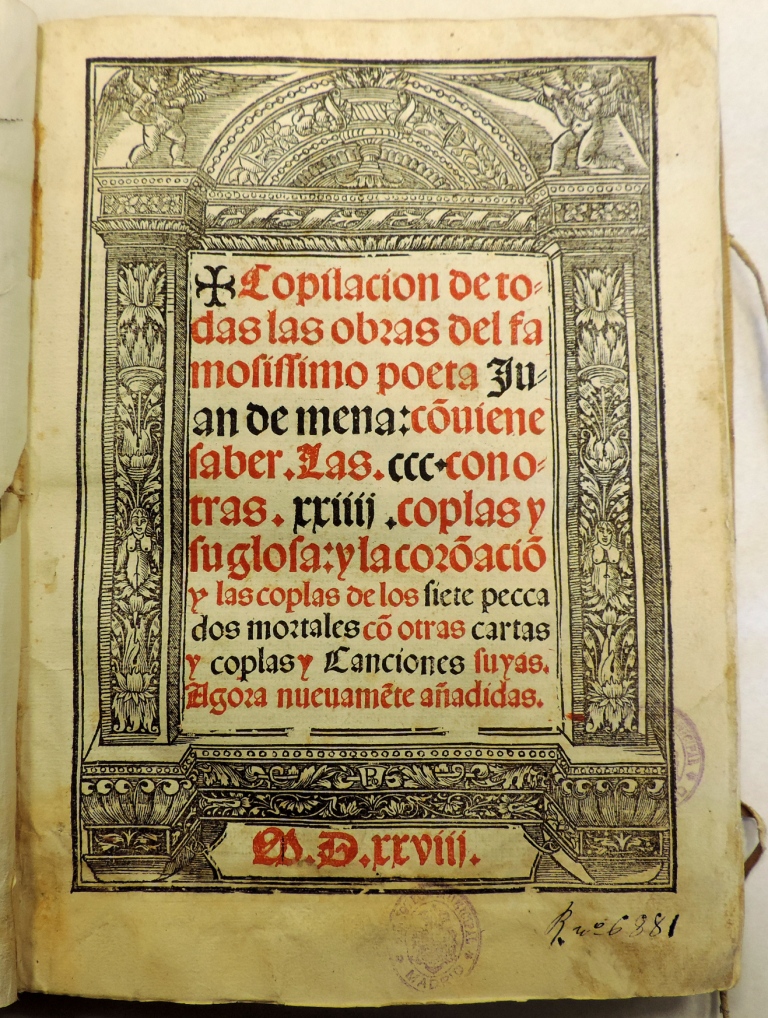 ✠ Copilacion de to-
das las obras del fa
mosissimo poeta Ju-
an de mena: cõuiene
saber. Las. ccc. con o-
tras. xxiiij. coplas y
su glosa: y la corõaciõ
y las coplas de los siete pecca
dos mortales cõ otras cartas
y coplas y Canciones suyas.
Agora nueuamẽte añadidas.
M.D.xxviij.
R. nº 6881
MADRID